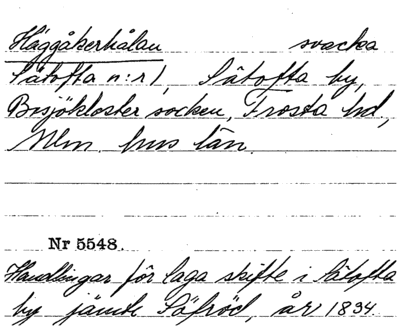 Häggåkerhålan svacka
Sätofta n:r 1, Sätofta by,
Bosjökloster socken, Frosta hd,
Mlm. hus län.
Nr 5548.
Handlingar för laga skifte i Sätofta
by jämte Säfröd, år 1834